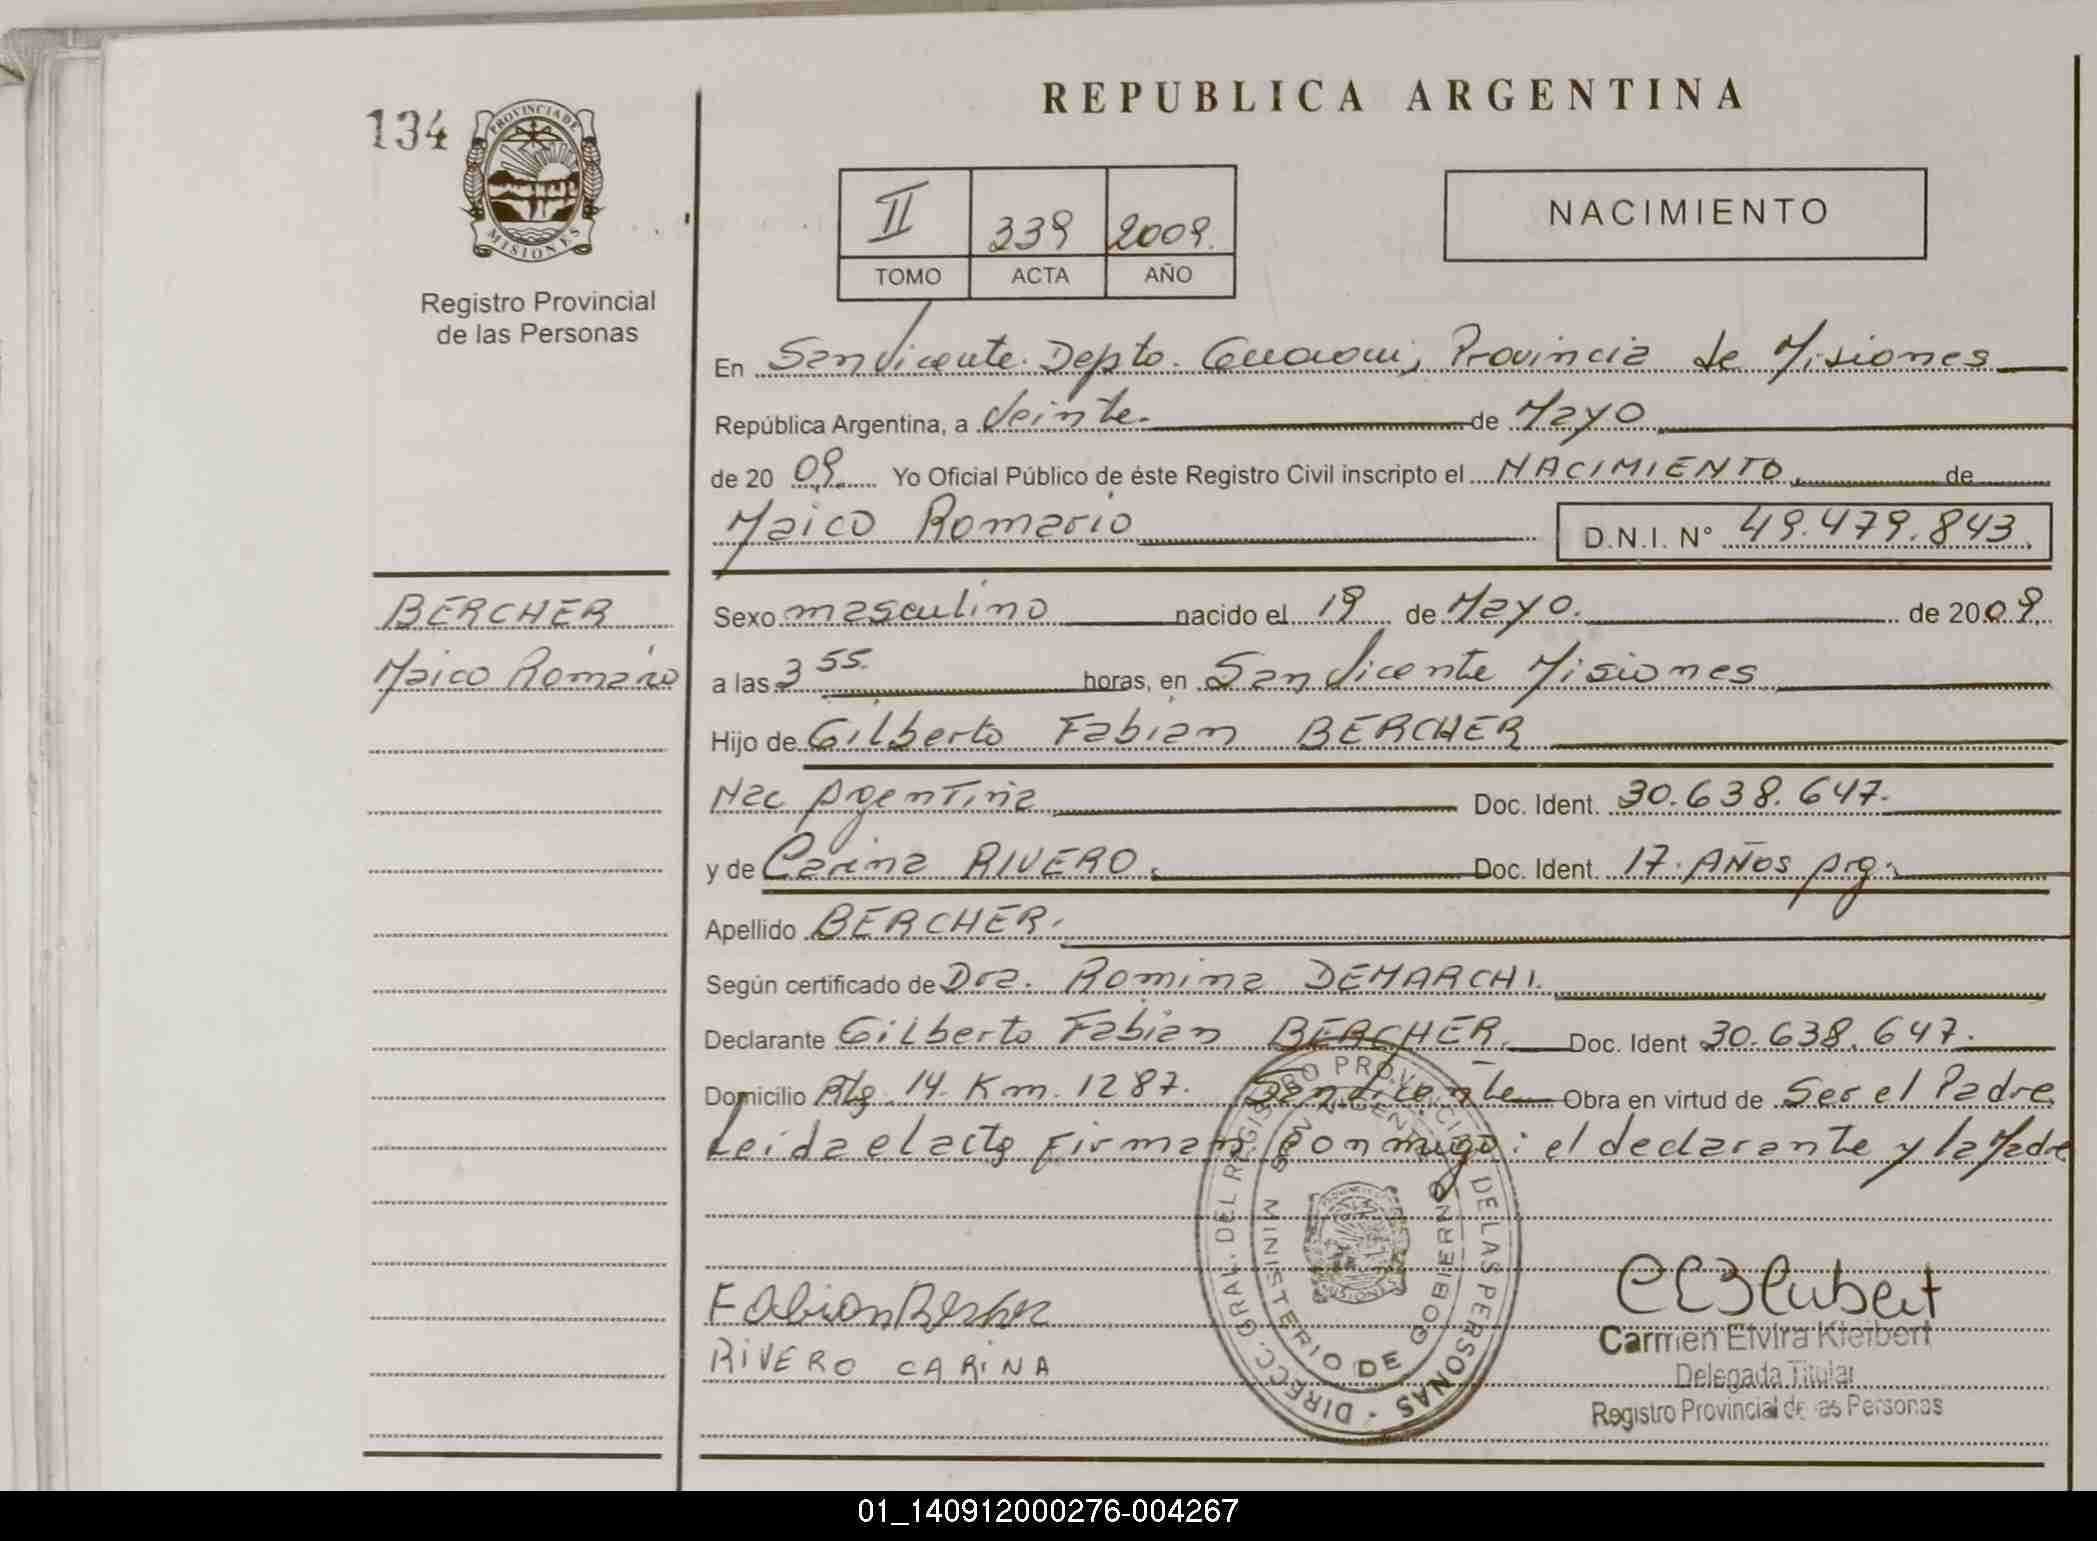 REPUBLICA ARGENTINA
134
PROVINCIA DE
MISIONES
Registro Provincial
de las Personas
II 339 2009.
TOMO ACTA AÑO
NACIMIENTO
En San Vicente. Depto. Guaraní, Provincia de Misiones
República Argentina, a Veinte. de Mayo
de 20 09. Yo Oficial Público de éste Registro Civil inscripto el NACIMIENTO. de
Maico Romario D.N.I. N° 49.479.843.
BERCHER
Maico Romario
Sexo masculino nacido el 19 de Mayo. de 2009.
a las 3 55. horas, en San Vicente Misiones
Hijo de Gilberto Fabian BERCHER
Nac Argentina Doc. Ident. 30.638.647.
y de Carina RIVERO. Doc. Ident. 17. AÑOS Arg.
Apellido BERCHER.
Según certificado de Dra. Romina DEMARCHI.
Declarante Gilberto Fabian BERCHER. Doc. Ident 30.638.647.
Domicilio 14. Km. 1287. San Vicente Obra en virtud de Ser el Padre.
Leída el acta firman conmigo: el declarante y la Madre
DIRECC. GRAL. DEL REGISTRO PROVINCIAL DE LAS PERSONAS -
SAN VICENTE
MINISTERIO DE GOBIERNO
Fabian Bercher
RIVERO CARINA
Carmen Elvira Kleibert
Delegada Titular
Registro Provincial de las Personas
01_140912000276-004267